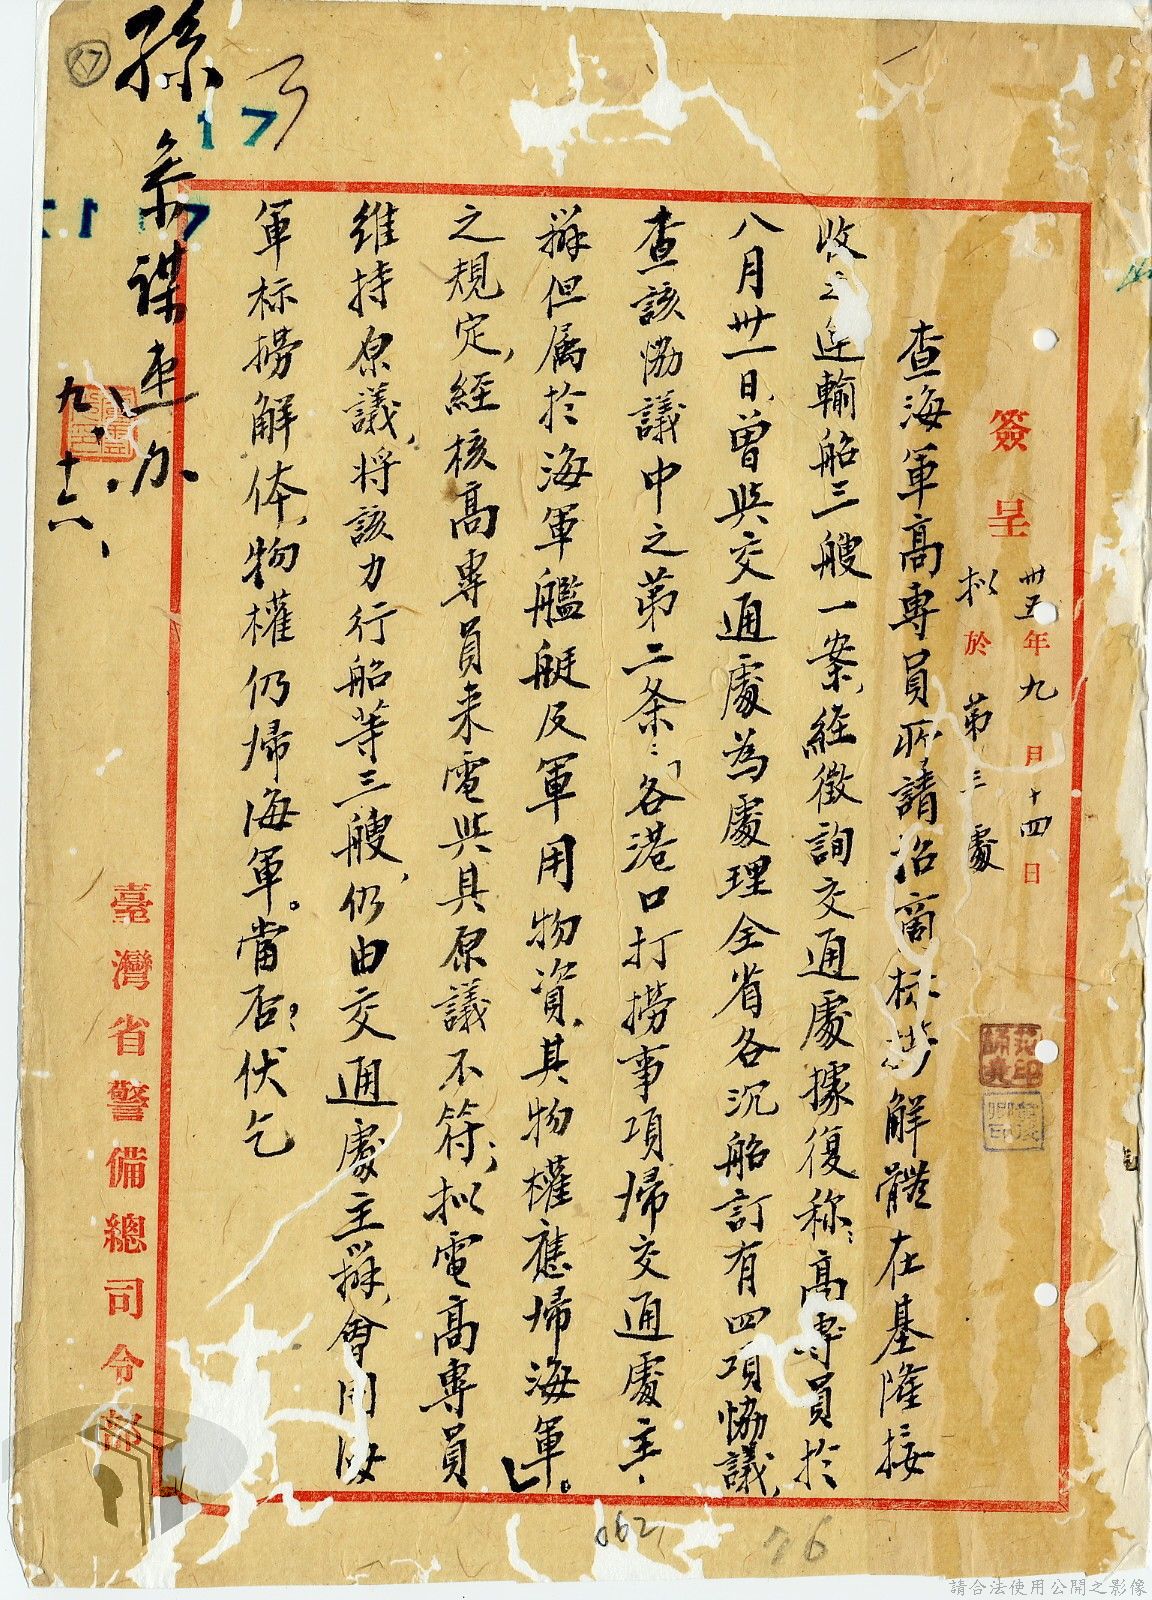 簽呈
卅五年九月十四日
擬於第三處
查海軍高專員所請招商标撈解體在基隆接
收之运輸船三艘一案，經徵詢交通處據復称：高專員於
八月卅一日，曾與交通處為處理全省各沉船訂有四項協議，
查該協議中之第二条：「各港口打撈事項帰交通處主、
辦但属於海軍艦艇及軍用物資，其物權應帰海軍。」
之規定，經核高專員来電與其原議不符；拟電高專員
維持原議，将該力行船等三艘，仍由交通處主辦，會同
軍标撈解体，物權仍帰海軍。當否？伏乞
臺灣省警備總司令部
孫参謀速办
九、十六、
17
17
17
062
76
請合法使用公開之影像